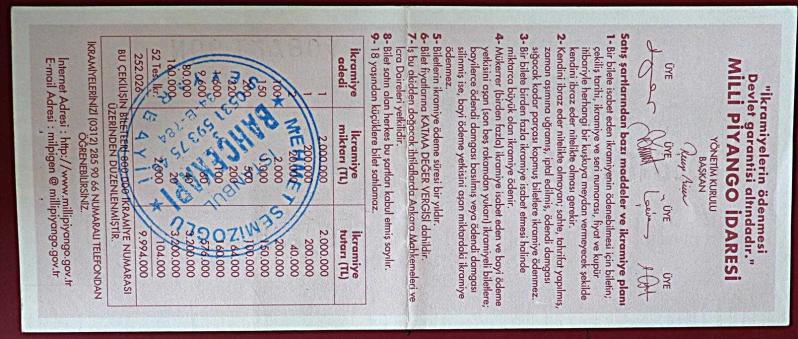 "İkramiyelerin ödenmesi
Devlet garantisi altındadır."
MİLLİ PİYANGO İDARESİ
YÖNETİM KURULU
BAŞKANI
ÜYE ÜYE ÜYE ÜYE
Satış şartlarından bazı maddeler ve ikramiye planı
1- Bir bilete isabet eden ikramiyenin ödenebilmesi için biletin;
çekiliş tarihi, ikramiye ve seri numarası, fiyat ve kupür
itibariyle herhangi bir kuşkuya meydan vermeyecek şekilde
kendini ibraz eder nitelikte olması gerekir.
2- Kendini ibraz eder nitelikte olmayan; sahte, tahrifat yapılmış,
zaman aşımına uğramış, iptal edilmiş, ödendi damgası
sığacak kadar parçası kopmuş biletlere ikramiye ödenmez.
3- Bir bilete birden fazla ikramiye isabet etmesi halinde
miktarca büyük olan ikramiye ödenir.
4- Mükerrer (birden fazla) ikramiye isabet eden ve bayi ödeme
yetkisini aşan (son beş rakamdan yukarı) ikramiyeli biletlere;
bayilerce ödendi damgası basılmış veya ödendi damgası
silinmiş ise, bayi ödeme yetkisini aşan miktardaki ikramiye
ödenmez.
5- Biletlerin ikramiye ödeme süresi bir yıldır.
6- Bilet fiyatlarına KATMA DEĞER VERGİSİ dahildir.
7- İş bu akidden doğacak ihtilaflarda Ankara Mahkemeleri ve
İcra Daireleri yetkilidir.
8- Bilet satın alan herkes bu şartları kabul etmiş sayılır.
9- 18 yaşından küçüklere bilet satılamaz.
İkramiye adedi İkramiye miktarı (TL) İkramiye tutarı (TL)
1 2.000.000 2.000.000
1 200.000 200.000
2 20.000 40.000
52 Tes.İk. 2.000 104.000
252.026 9.994.000
MEHMET SEMİZOĞLU
BAHÇEKAPI
İSTANBUL
0531 593 75
BU ÇEKİLİŞİN BİLETLERİ 600.000 İKRAMİYE NUMARASI
ÜZERİNDEN DÜZENLENMİŞTİR.
İKRAMİYELERİNİZİ (0312) 285 90 66 NUMARALI TELEFONDAN
ÖĞRENEBİLİRSİNİZ.
İnternet Adresi : http://www.millipiyango.gov.tr
E-mail Adresi : milpigen @ millipiyango.gov.tr